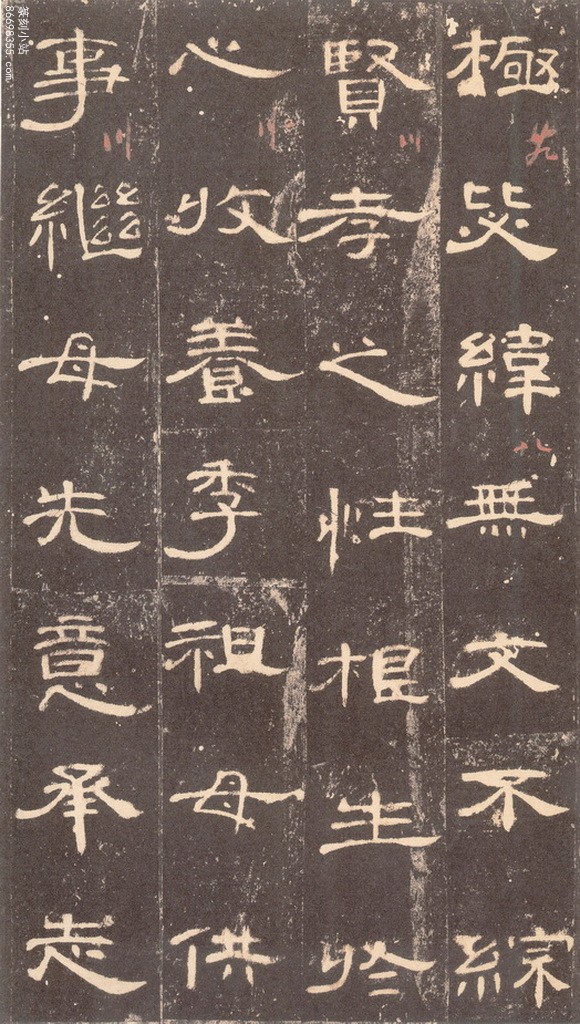 極毖緯無文不綜
賢孝之性根生於
心收養季祖母供
事繼母先意承志
篆刻小站
86698355.com